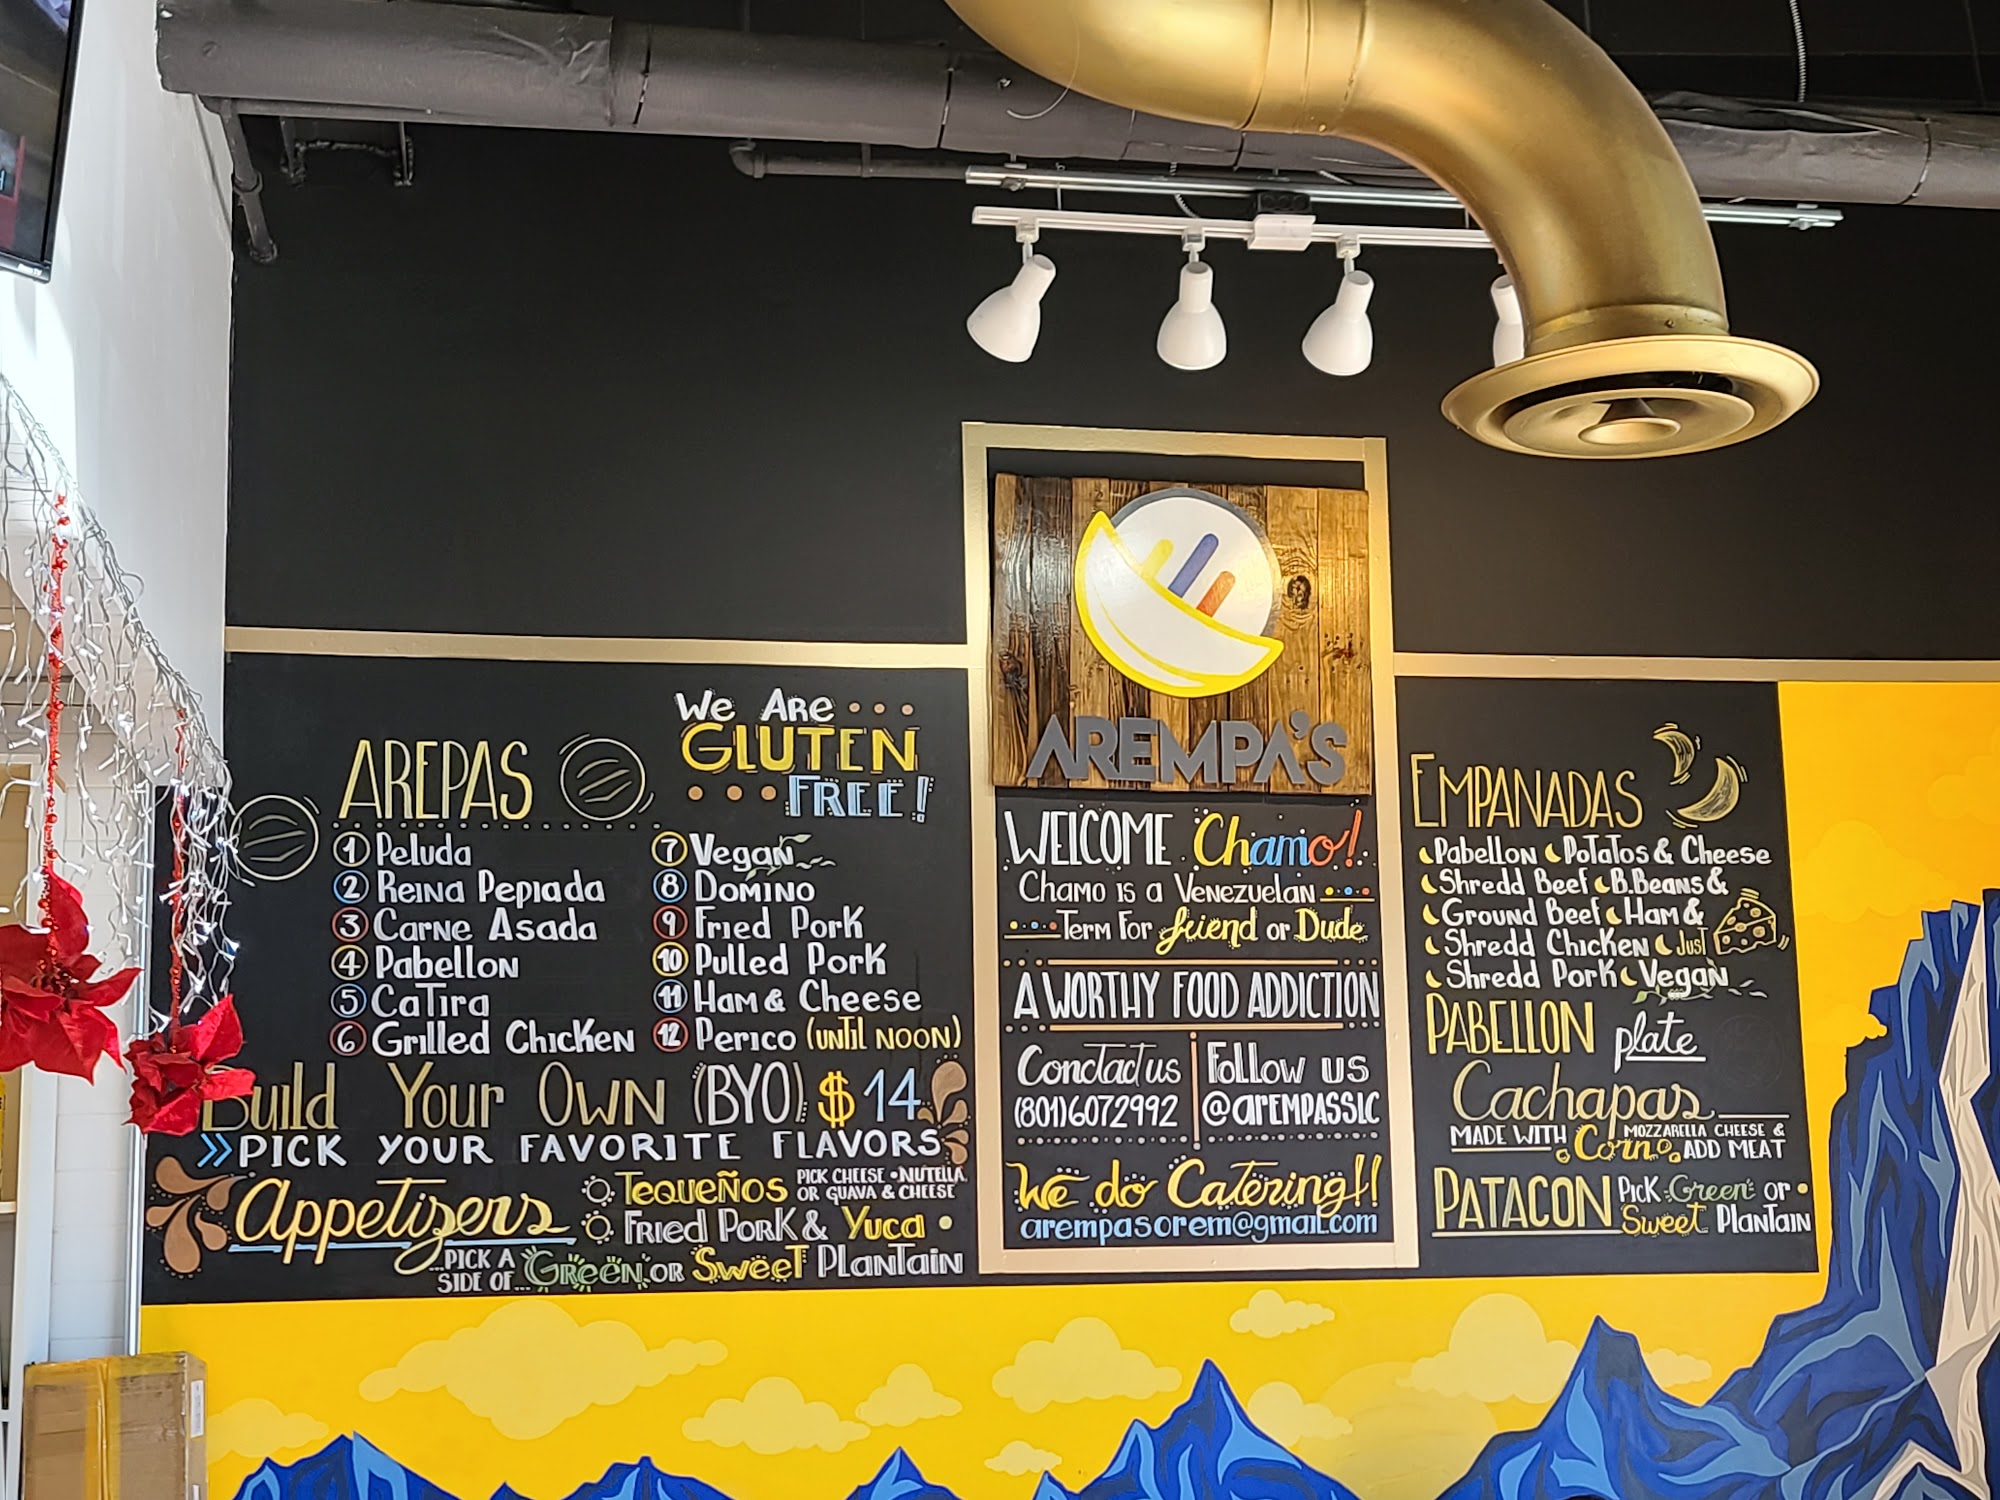 We Are
GLUTEN
FREE!
AREPAS
1 Peluda
2 Reina Pepiada
3 Carne Asada
4 Pabellon
5 Catira
6 Grilled Chicken
7 Vegan
8 Domino
9 Fried Pork
10 Pulled Pork
11 Ham & Cheese
12 Perico (until noon)
Build Your Own (BYO) $14
PICK YOUR FAVORITE FLAVORS
Appetizers
Tequeños PICK CHEESE • NUTELLA
OR GUAVA & CHEESE
Fried Pork & Yuca
...PICK A
SIDE OF... Green or Sweet Plantain
AREMPA'S
WELCOME Chamo!
Chamo is a Venezuelan
Term For friend or Dude
A WORTHY FOOD ADDICTION
Conctact us
(801)6072992
Follow us
@arempasslc
We do Catering!!
arempasorem@gmail.com
EMPANADAS
Pabellon Potatos & Cheese
Shredd Beef B.Beans &
Ground Beef Ham &
Shredd Chicken Just
Shredd Pork Vegan
PABELLON plate
Cachapas
MADE WITH Corn MOZZARELLA CHEESE &
ADD MEAT
PATACON Pick Green or
Sweet Plantain